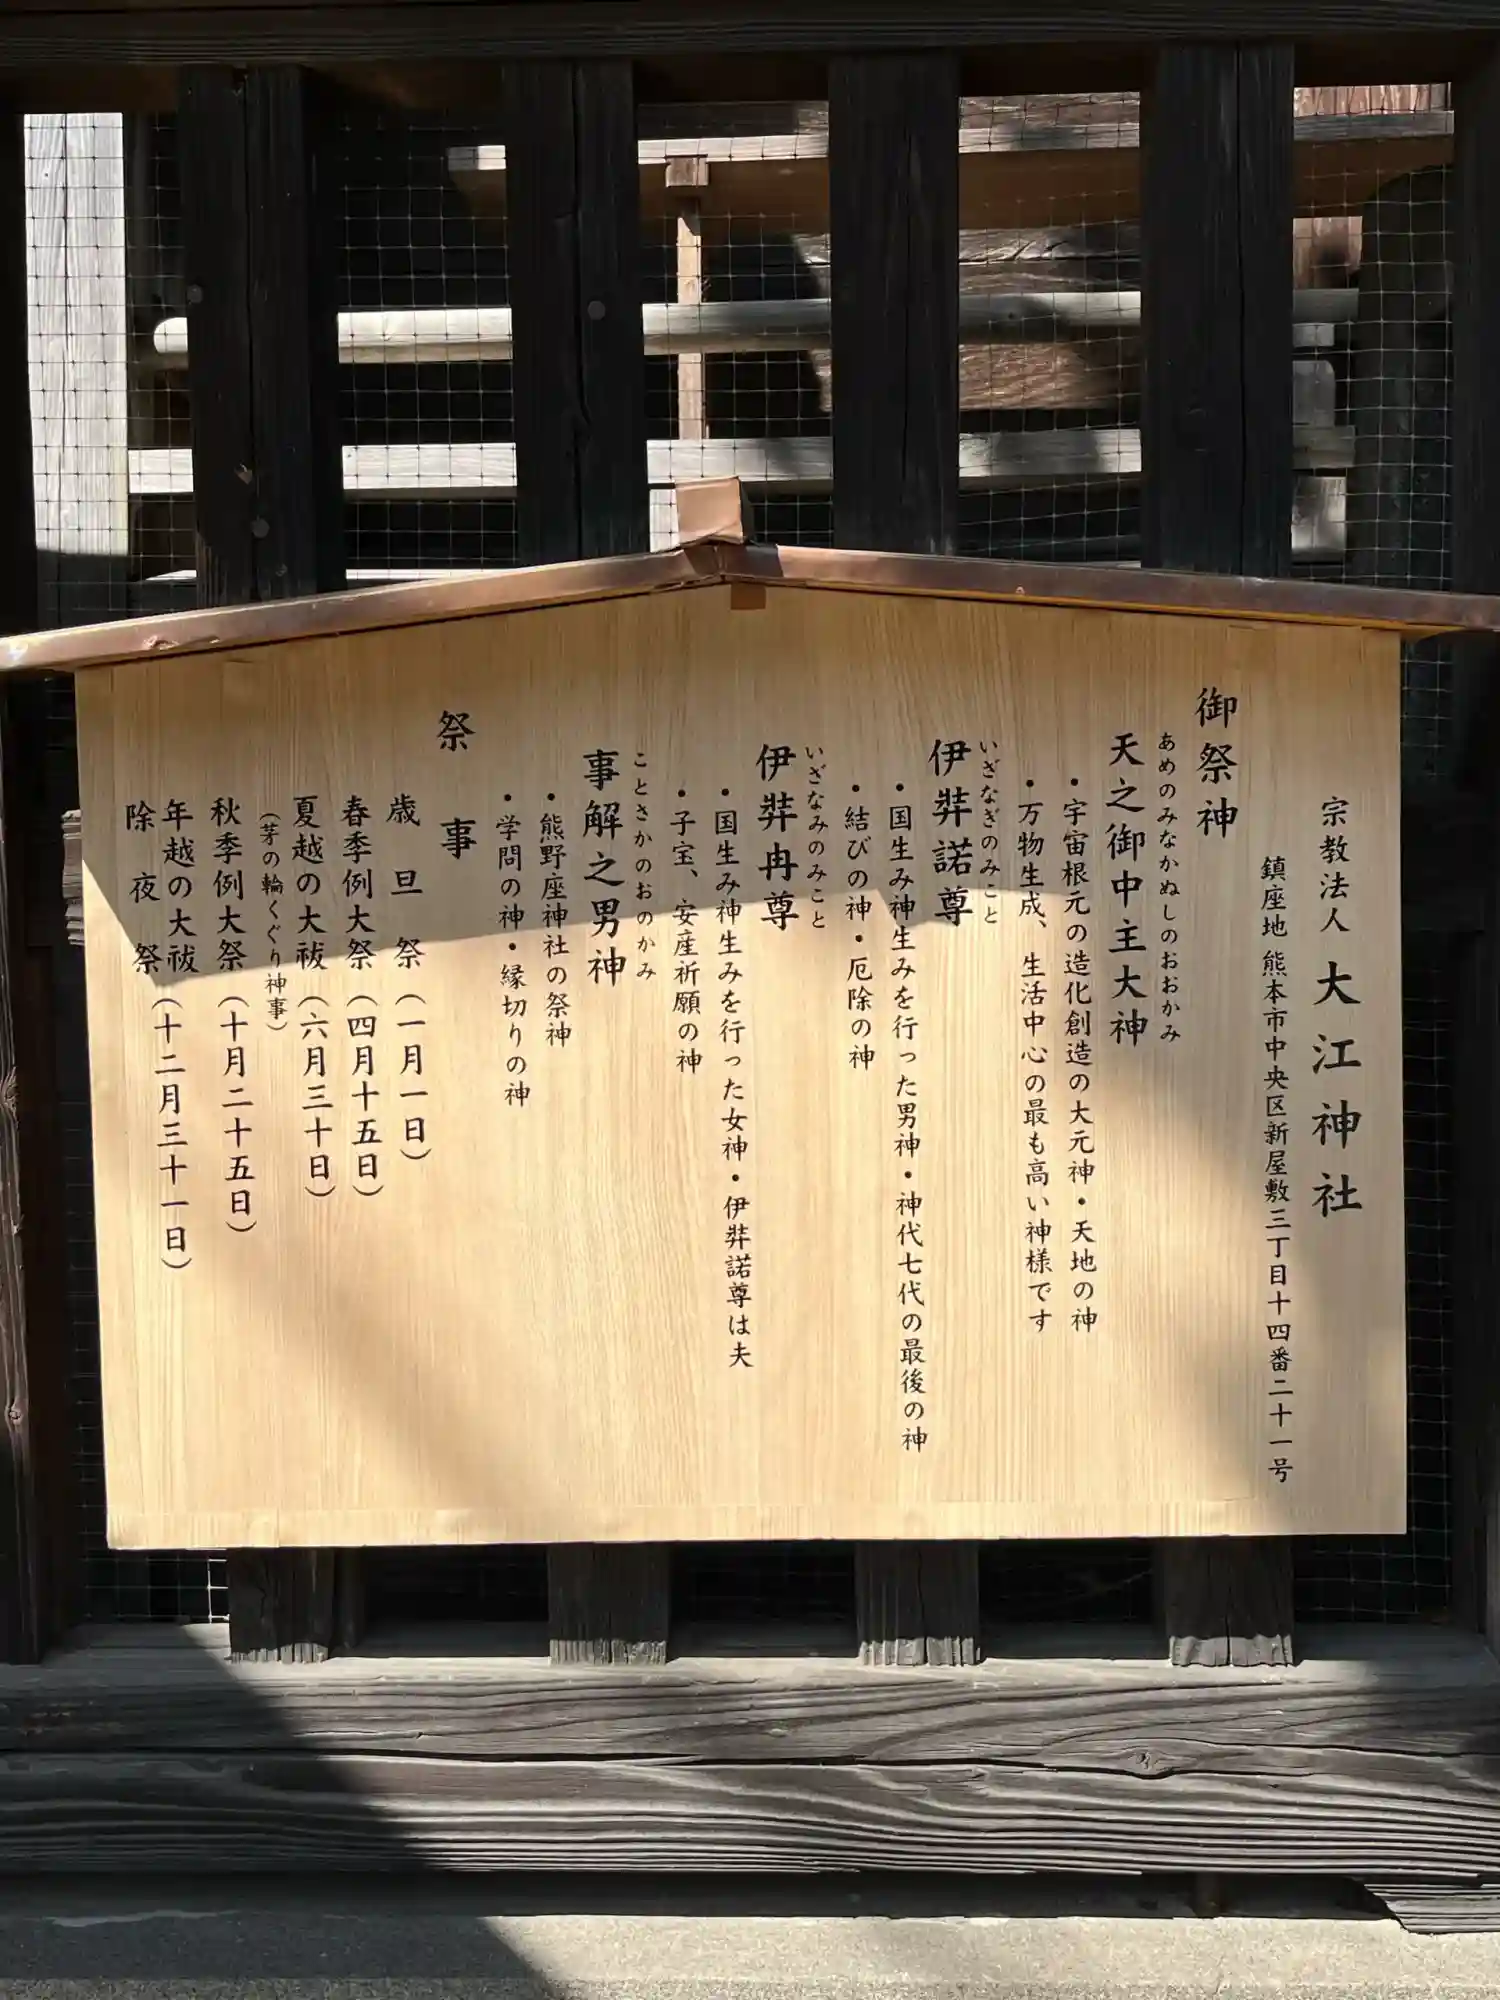 宗教法人 大江神社
鎮座地 熊本市中央区新屋敷三丁目十四番二十一号
御祭神
あめのみなかぬしのおおかみ
天之御中主大神
・宇宙根元の造化創造の大元神・天地の神
・万物生成、生活中心の最も高い神様です
いざなぎのみこと
伊弉諾尊
・国生み神生みを行った男神・神代七代の最後の神
・結びの神・厄除の神
いざなみのみこと
伊弉冉尊
・国生み神生みを行った女神・伊弉諾尊は夫
・子宝、安産祈願の神
ことさかのおのかみ
事解之男神
・熊野座神社の祭神
・学問の神・縁切りの神
祭事
歳旦祭(一月一日)
春季例大祭(四月十五日)
夏越の大祓(六月三十日)
(茅の輪くぐり神事)
秋季例大祭(十月二十五日)
年越の大祓
除夜祭(十二月三十一日)